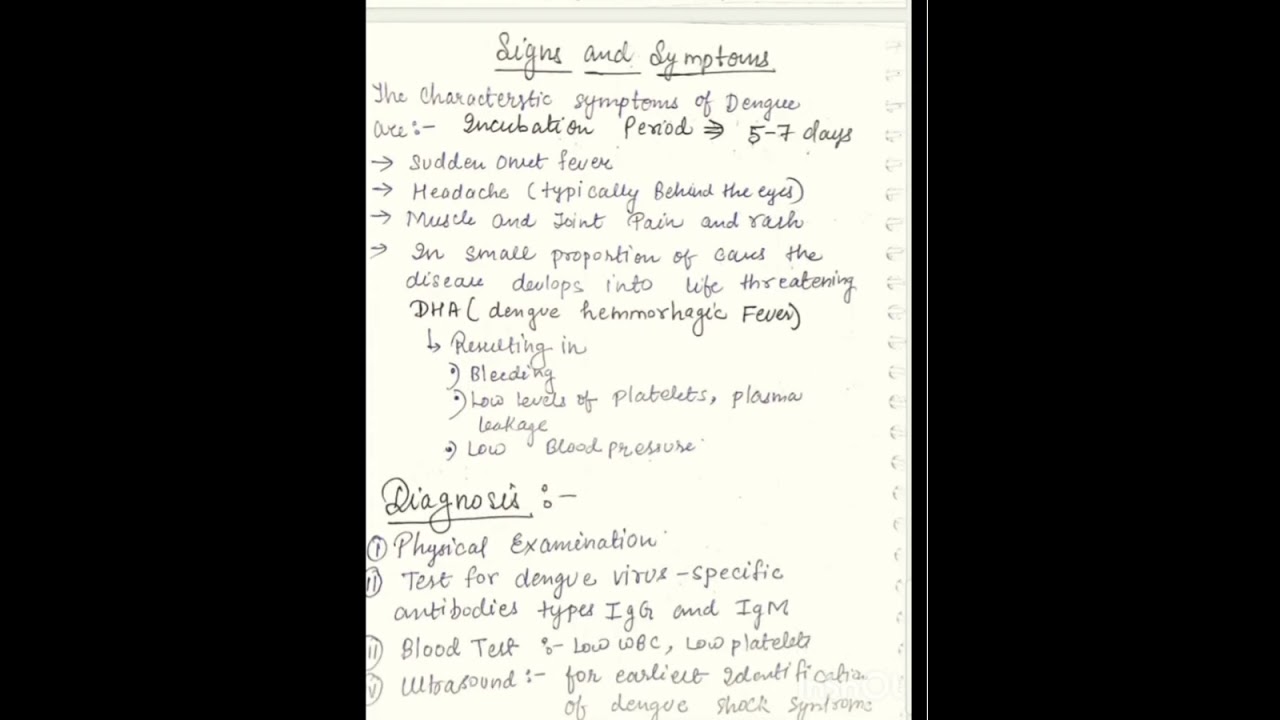 Signs and Symptoms
The Characterstic symptoms of Dengue
are:- Incubation Period ⇒ 5-7 days
→ Sudden onset fever
→ Headache (typically Behind the eyes)
→ Muscle and Joint Pain and rash
→ In small proportion of cases the
disease devlops into life threatening
DHA (dengue hemmorhagic Fever)
↳ Resulting in
•) Bleeding
•) Low levels of platelets, plasma
leakage
•) Low Blood pressure
Diagnosis :-
(i) Physical Examination
(ii) Test for dengue virus-specific
antibodies types IgG and IgM
Blood Test :- Low WBC, Low platelets
Ultrasound :- for earliest Identification
of dengue shock syndrome